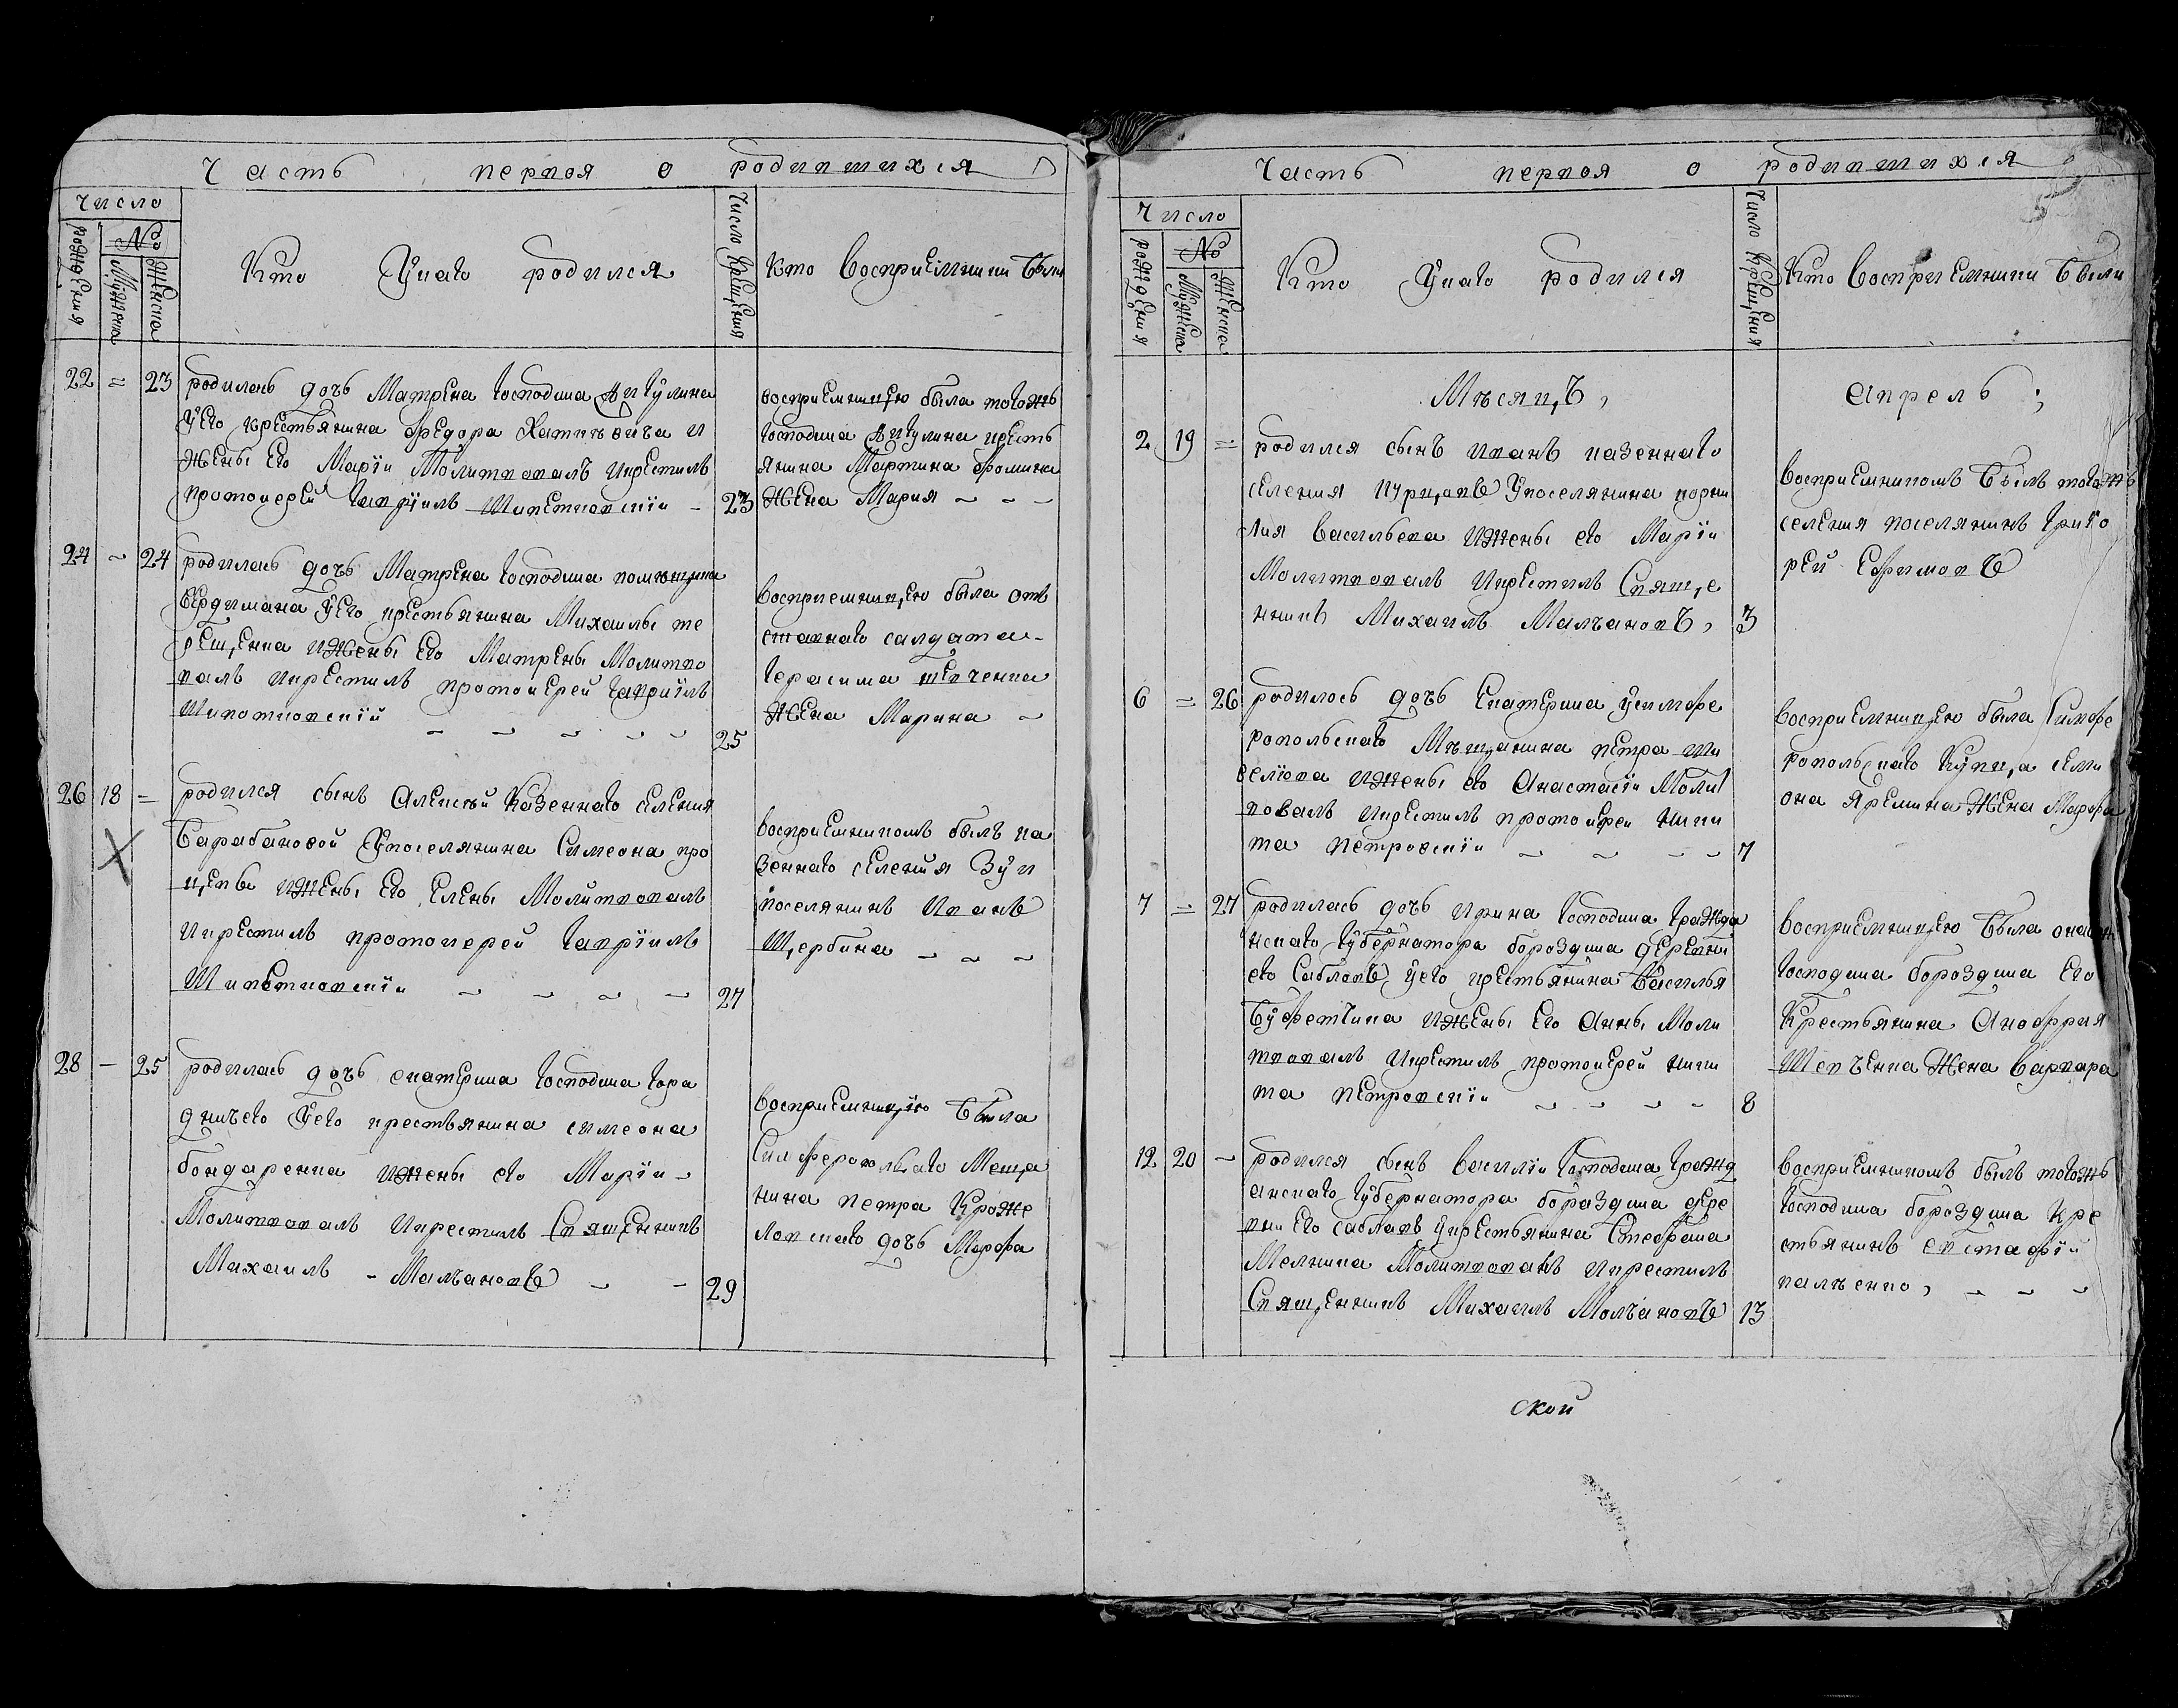 Часть первая о родившихся
Число
рождения
№
Мужска
Женска
Кто Укого родился
Число Крещения
Кто Восприемники были
22 = 23 родилась дочь Матрена Господина Викулина
Уего крестьянина Федора
жены Его Маріи Молитвовалъ икрестилъ
протоиерей Гавріилъ 23
восприемницею была тогожъ
Господина Викулина кресть
янина Мартина Фомина
Жена Мария
24 ~ 24 родилась дочь Матрена Господина помещика
Уего крестьянина Михаилы те
рещенка ижены Его Матрены Молитво
валъ икрестилъ протоиерей Гавриілъ
25
восприемницею была отъ
ставнаго салдата
Герасима шевченка
Жена Марина
26 18 = родился сынъ Алексѣй Казеннаго селения
Барабановой Упоселянина Симеона про
ценка ижены Его Елены Молитвовалъ
Икрестилъ протоиерей Гавріилъ
27
восприемникомъ былъ ка
зеннаго селения Зуи
поселянинъ Иванъ
Щербина
28 — 25 родилась дочь екатерина Господина Гора
дничего Уего крестьянина симеона
бондаренка ижены его Маріи
Молитвовалъ Икрестилъ Священникъ
Михаилъ Малчановъ 29
Восприемницею была
Симферополькаго Меща
нина петра Краже
Марфа
Часть первая о родившихся
Число
рождения
№
Мужеска
Женска
Кто Укого родился
Число Крещения
Кто Восприемники были
Мѣсяцъ, Апрель ;
2 19 = родился сынъ Иванъ казеннаго
селения Курцовъ Упоселянина корни
лия Васильева ижены его Маріи
Молитвовалъ Икрестилъ Священ
никъ Михаилъ Малчановъ, 3
Восприемникомъ былъ тогожъ
селения поселянинъ Григо
рей Ефимовъ
6 = 26 родилась дочь Екатерина Усимфе
ропольскаго Мѣщанина петра
ижены его Анастасіи Молит
вовалъ икрестилъ протоиерей Ники
та Петровскіи 7
Восприемницею была Симфе
ропольскаго Купца сими
она Яремина Жена Марфа
7 = 27 родилась дочь Ирина Господина Гражда
нскаго Губернатора бороздина деревни
его Сабловъ Уего крестьянина Василья
ижены Его Анны Моли
твовалъ Икрестилъ протоиерей Ники
та Петровскіи 8
Восприемницею была
Господина бороздина Его
Крестьянина Анофрия
Шевченка Жена Варвара
12 20 ~ родился сынъ Василіи Господина Гражд
анскаго Губернатора бораздина дере
вни Его сабловъ Укрестьянина Стефана
Мелника Молитвовалъ Икрестилъ
Священникъ Михаилъ Молчановъ 13
Восприемникомъ былъ тогожъ
Господина бороздина Кре
стьянинъ евстафій
палченко,
ской